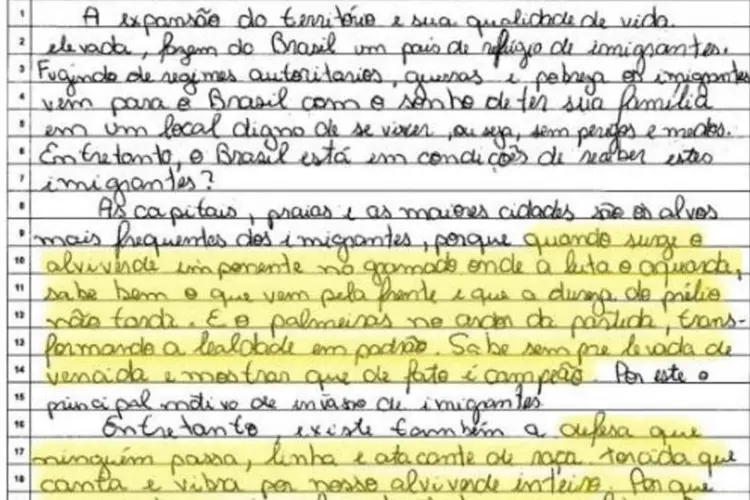 1 A expansão do território e sua qualidade de vida
2 elevada, fazem do Brasil um país de refúgio de imigrantes.
3 Fugindo de regimes autoritarios, guerras e pobreza os imigrantes
4 vem para o Brasil com o sonho de ter sua família
5 em um local digno de se viver, ou seja, sem perigos e medos.
6 Entretanto, o Brasil está em condições de receber estes
7 imigrantes?
8 As capitais, praias e as maiores cidades são os alvos
9 mais frequentes dos imigrantes, porque quando surge o
10 alviverde imponente no gramado onde a luta o aguarda,
11 sabe bem o que vem pela frente e que a dureza do prélio
12 não tarda. E o palmeiras no ardor da partida, trans-
13 formando a lealdade em padrão. Sabe sempre levada de
14 vencida e mostrar que de fato é campeão. Por este o
15 principal motivo de invasão de imigrantes
16 Entretanto, existe também a defesa que
17 ninguém passa, linha e atacante de raça. torcida que
18 canta e vibra por nosso alviverde inteiro. Porque